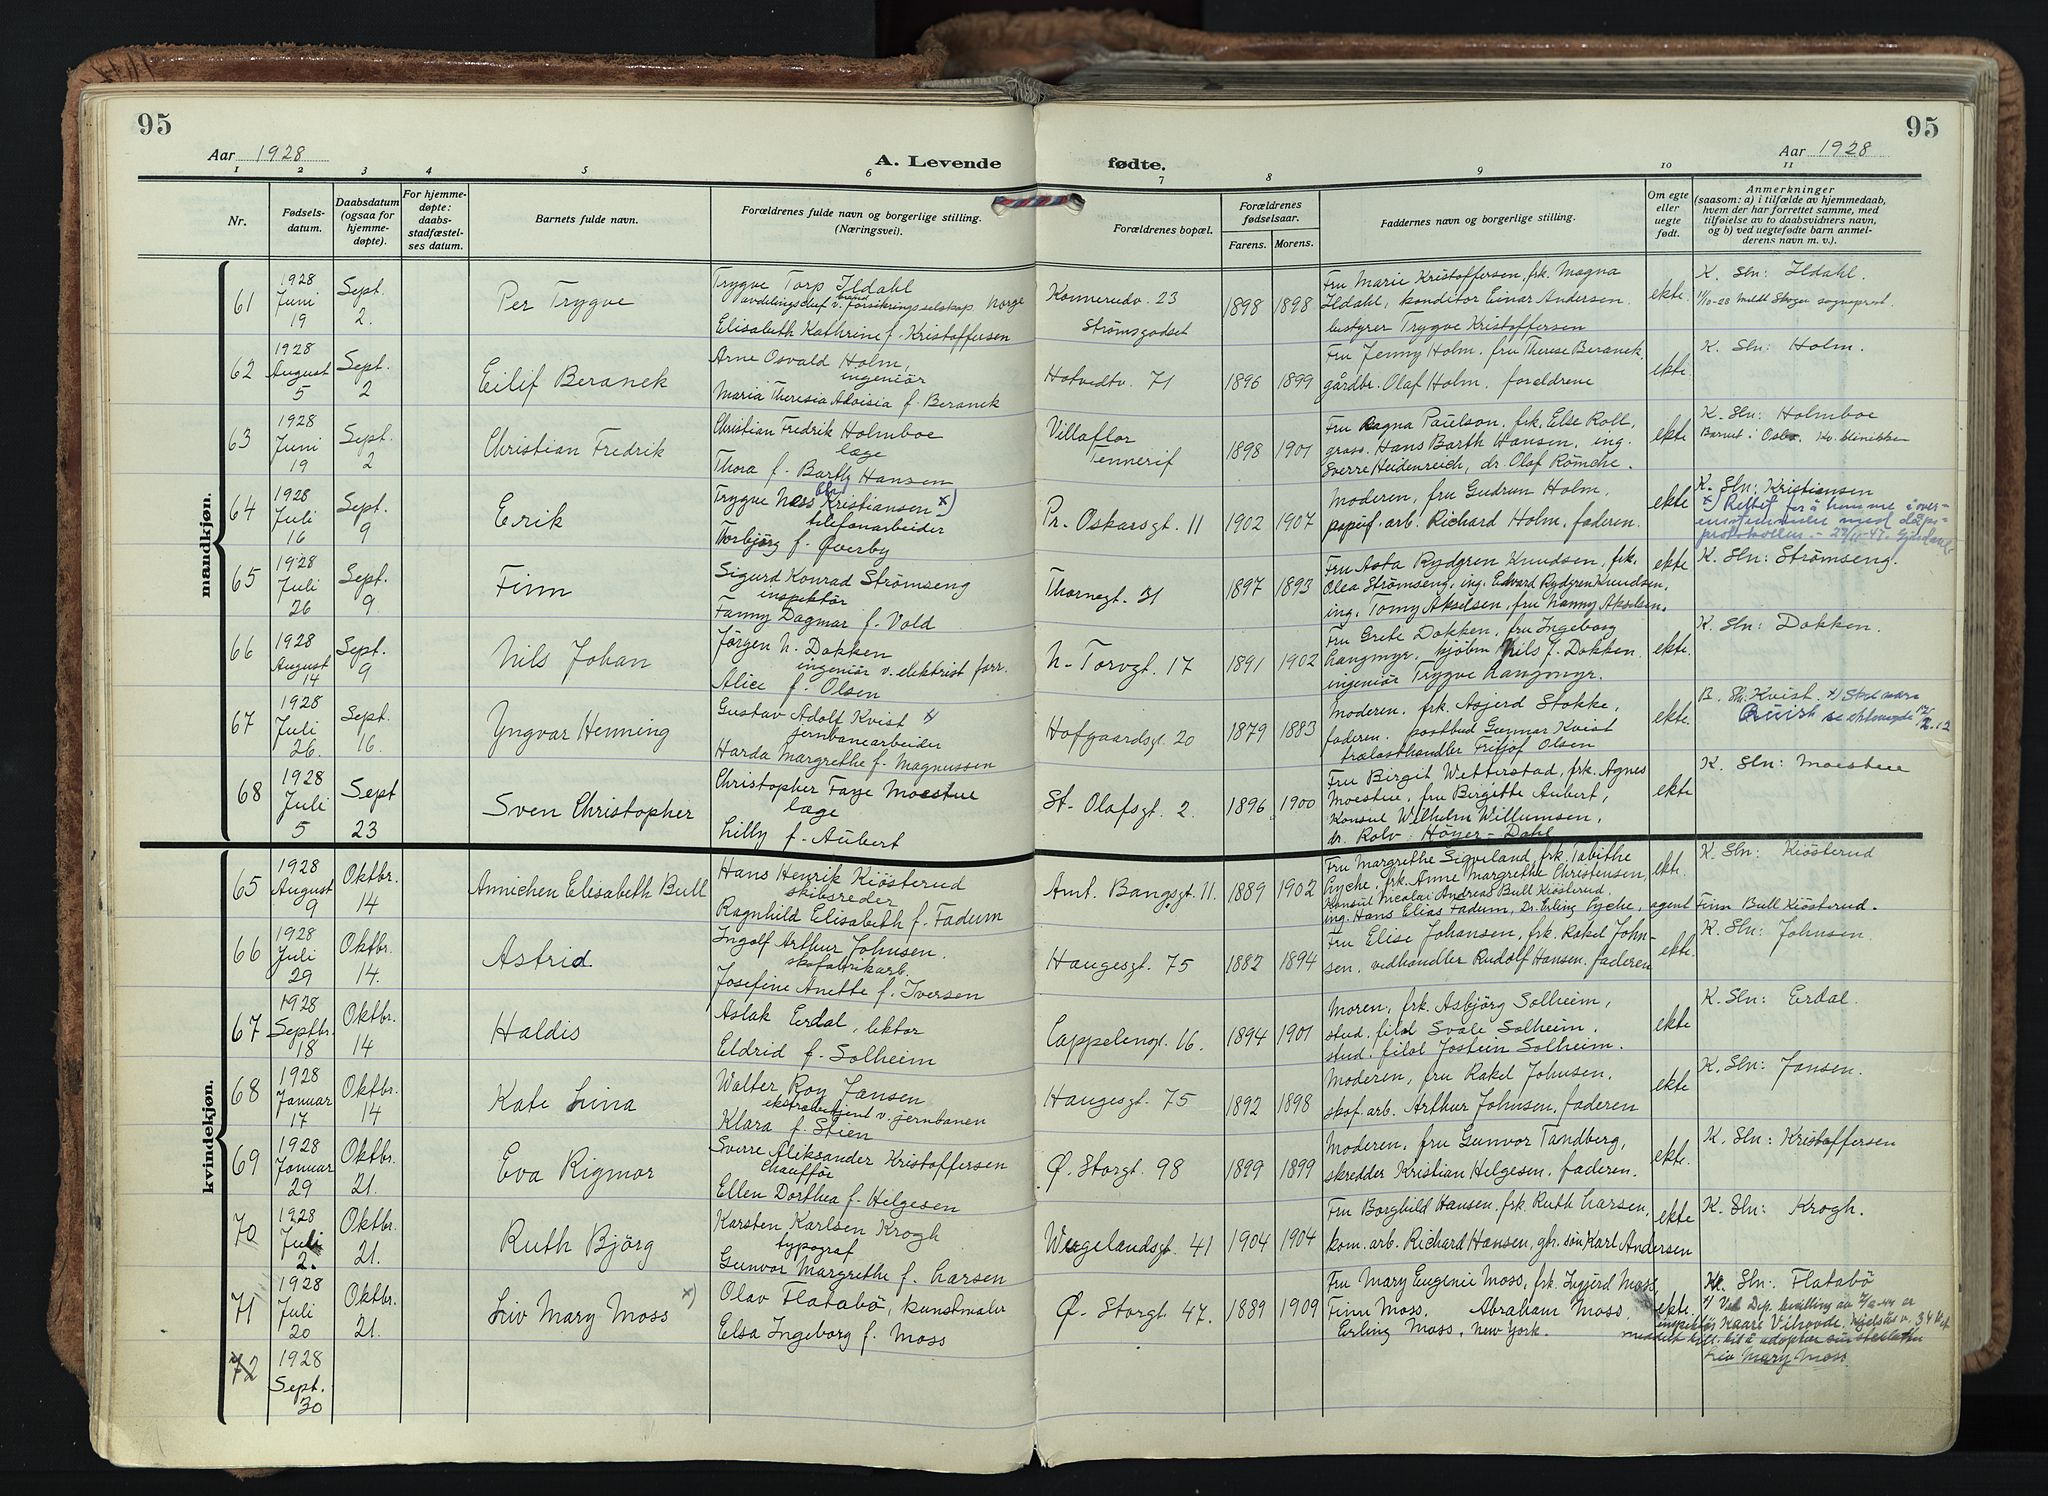 95
95
Aar 1928
A. Levende fødte.
Aar 1928
1 2 3 4 5 6 7 8 9 10 11
Nr.
Fødsels-
datum.
Daabsdatum
(ogsaa for
hjemme-
døpte).
For hjemme-
døpte:
daabs-
stadfæstel-
ses datum.
Barnets fulde navn.
Forældrenes fulde navn og borgerlige stilling.
(Næringsvei).
Forældrenes bopæl.
Forældrenes
fødselsaar.
Farens. Morens.
Faddernes navn og borgerlige stilling.
Om egte
eller
uegte
født.
Anmerkninger
(saasom: a) i tilfælde av hjemmedaab,
hvem der har forrettet samme, med
tilføielse av to daabsvidners navn,
og b) ved uegtefødte barn anmel-
derens navn m. v.).
mandkjøn.
61
1928
Juni
19
Sept.
2.
Per Trygve
Trygve Torp Ildahl
avdelingschef v. brand forsikringsselskap. Norge
Elisabeth Kathrine f. Kristoffersen
Konnerudv. 23
Strømsgodset
1898 1898
Fru Marie Kristoffersen, frk. Magna
Ildahl, konditor Einar Andersen.
bestyrer Trygve Kristoffersen
ekte
K. Sln: Ildahl.
11/10-28 meldt Skoger sogneprest.
62
1928
August
5
Sept.
2
Eilif Beranek
Arne Osvald Holm,
ingeniör
Maria Theresia Aloisia f. Beranek
Hotvedtv. 71
1896 1899
Fru Jenny Holm. fru Therese Beranek
gårdbr. Olaf Holm. foreldrene
ekte
K. Sln: Holm.
63
1928
Juni
19
Sept.
2
Christian Fredrik
Christian Fredrik Holmboe
læge
Thora f. Barth Hansen
Villaflor
Tennerif
1898 1901
Fru Ragna Paulson, frk. Else Roll,
gross. Hans Barth Hansen, ing.
Sverre Heidenreich, dr. Olaf Römcke.
ekte
K. Sln: Holmboe
Barnet i Oslo. Kv. klinikken
64
1928
Juli
16
Sept.
9
Erik
Trygve Ness Kristiansen x)
telefonarbeider
Torbjörg f. Øverby
Pr. Oskarsgt. 11
1902 1907
Moderen, fru Gudrun Holm,
papirf. arb. Richard Holm, faderen.
ekte
K. Sln: Kristiansen
x) Rettet for å komme i over-
ensstemmelse med dåps-
protokollen. - 27/11-47.
65
1928
Juli
26
Sept.
9.
Finn
Sigurd Konrad Strömseng
inspektör
Fanny Dagmar f. Vold
Thornegt. 31
1897 1893
Fru Asta Rydgren Knudsen, frk.
Olea Strömseng, ing. Edvard Rydgren Knudsen,
ing. Tomy Akselsen, fru Nanny Akselsen.
ekte
K. Sln: Strömseng.
66
1928
August
14
Sept.
9
Nils Johan
Jørgen N. Dokken
ingeniör v. elektrist forr.
Alice f. Olsen
N. Torvgt. 17
1891 1902
Fru Greti Dokken, fru Ingeborg
Langmyr, kjöbm Nils J. Dokken
ingeniör Trygve Langmyr.
ekte.
K. Sln: Dokken.
67
1928
Juli
26.
Sept.
16.
Yngvar Henning
Gustav Adolf Kvist x
jernbanearbeider
Harda Margrethe f. Magnussen
Hofgaardsgt. 20
1879 1883
Moderen, frk. Asjerd Stokke,
faderen. postbud Gunnar Kvist
trælasthandler Tritjof Olsen
ekte.
B. Sln: Kvist. x) Skal være
Quist
68
1928
Juli
5
Sept
23
Sven Christopher
Christopher Faye Moestue
læge
Lilly f. Aubert
St. Olafsgt. 2.
1896 1900
Fru Birgit Wetterstad, frk. Agnes
Moestue, fru Birgitte Aubert,
Konsul Wilhelm Willumsen,
dr. Rolv Höyer-Dahl
ekte
K. Sln: Moestue
kvindekjøn.
65
1928
August
9
Oktbr.
14
Annichen Elisabeth Bull
Hans Henrik Kiösterud
skibsreder
Ragnhild Elisabeth f. Fadum
Amt. Bangsgt. 11.
1889 1902
Fru Margrethe Sigveland, frk. Tabithe
Lyche, frk. Anne Margrethe Christensen,
Konsul Nicolai Andreas Bull Kiösterud.
ing. Hans Elias Fadum, Dr. Erling Lyche, agent Finn Bull Kiösterud.
ekte.
K. Sln: Kiösterud
66
1928
Juli
29
Oktbr.
14.
Astrid
Ingolf Arthur Johnsen.
skofabrikarb.
Josefine Anette f. Iversen
Haugesgt. 75
1882 1894
Fru Elise Johansen, frk. Rakel John-
sen, vedhandler Rudolf Hansen, faderen
ekte.
K. Sln: Johnsen.
67
1928
Septbr.
18
Oktbr.
14
Haldis
Aslak Erdal, lektor
Eldrid f. Solheim
Cappelengt. 16.
1894 1901
Moren, frk. Asbjörg Solheim,
stud. filol Svale Solheim.
stud. filol Jostein Solheim.
ekte
K. Sln: Erdal.
68
1928
Januar
17
Oktbr.
14
Kate Lina
Walter Roy Jansen
ekstrabetjent v. jernbanen
Klara f. Stien
Haugesgt. 75
1892 1898
Moderen, fru Rakel Johnsen,
skof. arb. Arthur Johnsen, faderen
ekte
K. Sln: Jansen.
69
1928
Januar
29
Oktbr.
21.
Eva Rigmor
Sverre Aleksander Kristoffersen
Chauffør
Ellen Dorthea f. Helgesen
Ø. Storgt. 98
1899 1899
Moderen, fru Gunvor Tandberg,
skredder Kristian Helgesen, faderen.
ekte.
K. Sln: Kristoffersen
70
1928
Juli
2.
Oktbr.
21.
Ruth Björg
Karsten Karlsen Krogh
typograf
Gunvor Margrethe f. Larsen
Wergelandsgt. 41
1904 1904
Fru Borghild Hansen, frk Ruth Larsen,
kom. arb. Richard Hansen, gbr. sön Karl Andersen
ekte
K. Sln: Krogh.
71
1928
Juli
20
Oktbr.
21.
Liv Mary Moss x)
Olav Flatabö, kunstmaler
Elsa Ingeborg f. Moss
Ø. Storgt. 47.
1889 1909
Fru Mary Eugenie Moss, frk. Ingjerd Moss,
Finn Moss. Abraham Moss,
Erling Moss, New York.
ekte.
Kl. Sln: Flatabö
x) Ved Dep. bevilling av er
inspektör Kaare Vihovde, Kjelsås v. 34
meddelt till. til å adoptere sin stedatter
Liv Mary Moss.
72
1928
Sept.
30